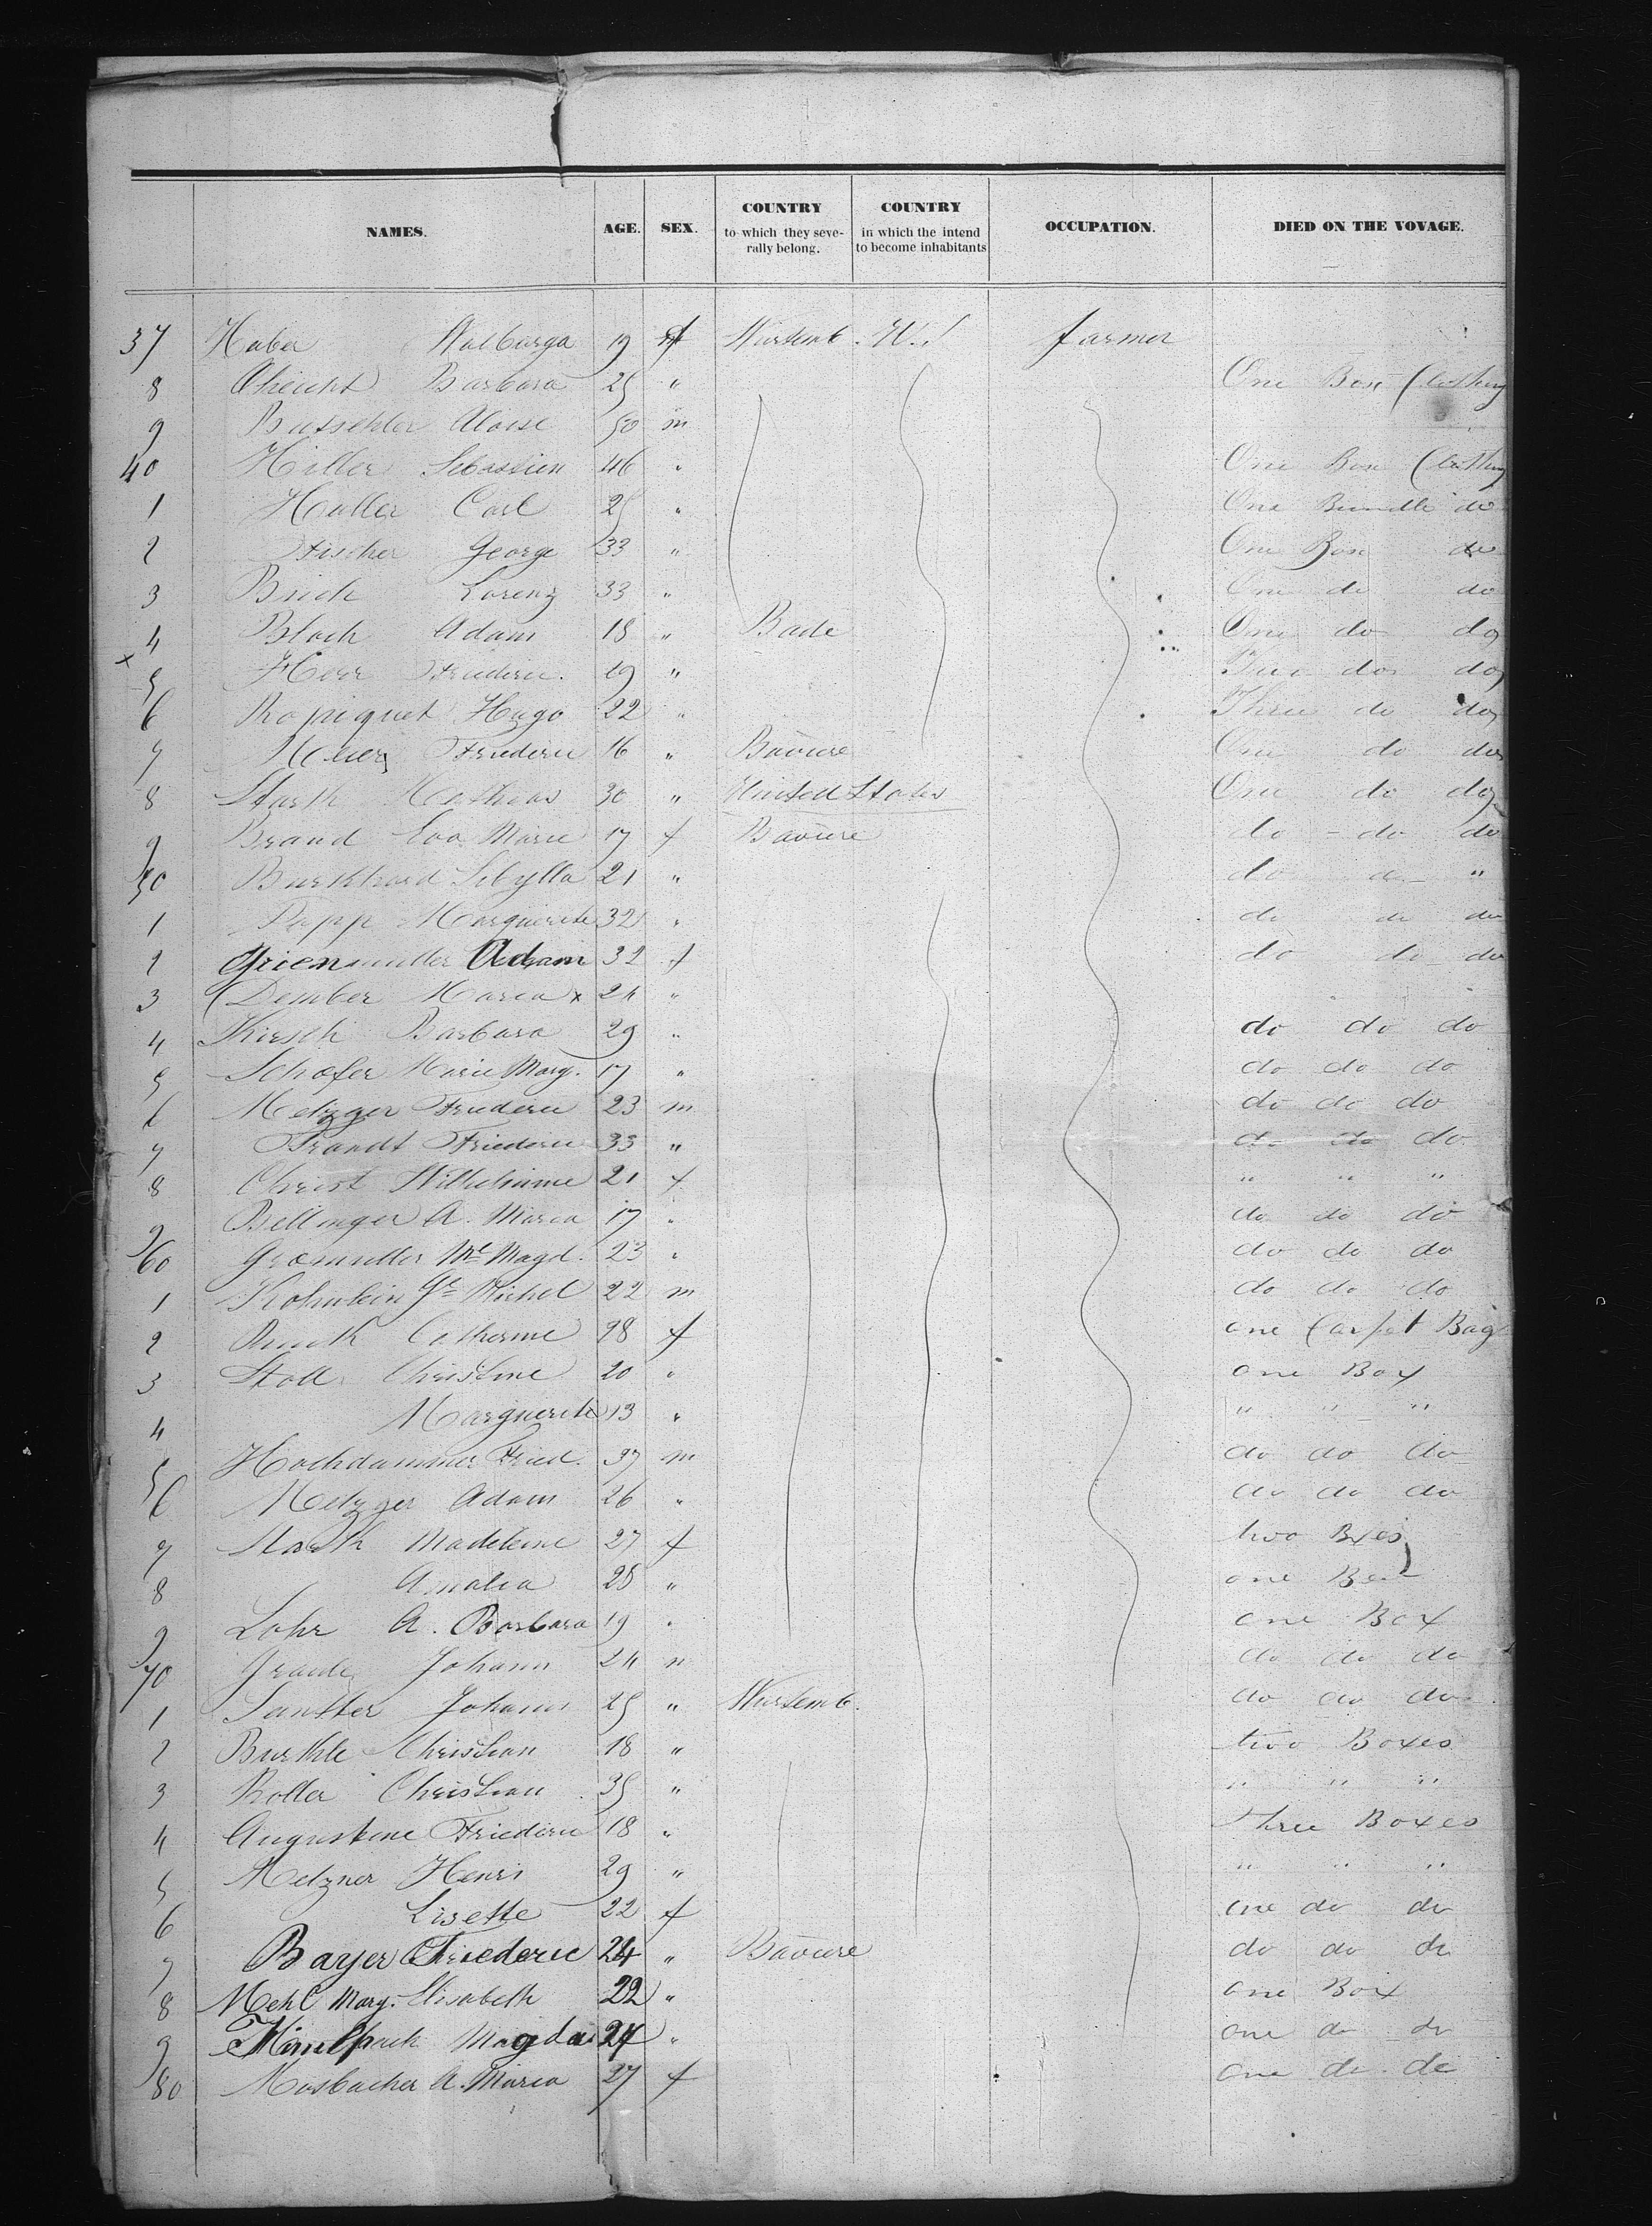 NAMES. AGE. SEX. COUNTRY to which they severally belong. COUNTRY in which the intend to become inhabitants OCCUPATION. DIED ON THE VOYAGE.
37 Huber Walburga 19 f Wurtemb. farmer
8 Barbara 25 " One Box Clothing
9 Aloise 50 m
40 Hiller Sebastien 46 " One Box Clothing
1 Haller Carl 25 " One Bundle do
2 Fischer George 33 " One Box do
3 Lorenz 33 " One do do
4 Bloch Adam 18 " Bade One do do
x 5 Herr Friederic. 19 " Two do do
6 Ropiquet Hugo 22 " Three do do
7 Friederic 16 " Baviere One do do
8 Stark Mathias 30 " United States One do do
9 Brand Eva Marie 17 f Baviere do - do do
50 Burkhard Sibylla 21 " do do "
1 Papp Marguerite 32 " do do do
2 Grienmuller Adam 32 f do do do
3 Dember Maria x 24 "
4 Kirsch Barbara 29 " do do do
5 Schafer Marie Marg. 17 " do do do
6 Metzger Friederic 23 m do do do
7 Brandt Friederic 33 " do do do
8 Christ Wilhelmine 21 f " " "
9 Bellinger A. Maria 17 " do do do
60 Magd. 23 " do do do
1 Michel 22 m do do do
2 Catherine 28 f one Carpet Bag
3 Stoll Christine 20 " one Box
4 Marguerite 13 " " " "
5 Hochdammer Fried. 37 m do do do
6 Metzger Adam 26 " do do do
7 Stark Madeleine 27 f two Bxes
8 Amalia 25 " one Box
9 Lohr A. Barbara 19 " one Box
70 Johann 24 m do do do
1 Johann 25 " Wurtemb. do do do
2 Burkle Christian 18 " two Boxes
3 Roller Christian 35 " " " "
4 Augustine Friederic 18 " three Boxes
5 Metzner Henri 29 " " " "
6 Lisette 22 f one do do
7 Bayer Friederic 24 " Baviere do do do
8 Mehl Marg. Elisabeth 22 " one Box
9 Magda 24 " one do do
80 Mosbacher A. Maria 27 f one do do